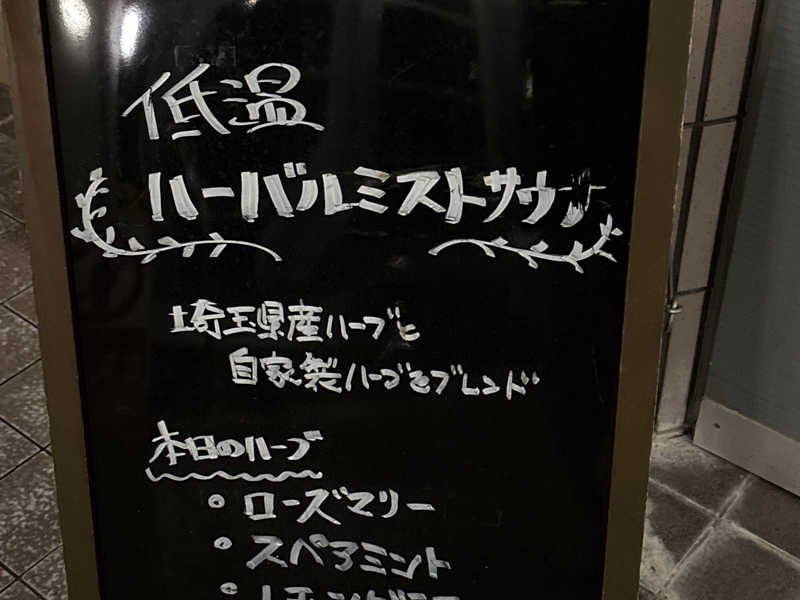 低温
ハーバルミストサウナ
埼玉県産ハーブと
自家製ハーブをブレンド
本日のハーブ
・ローズマリー
・スペアミント